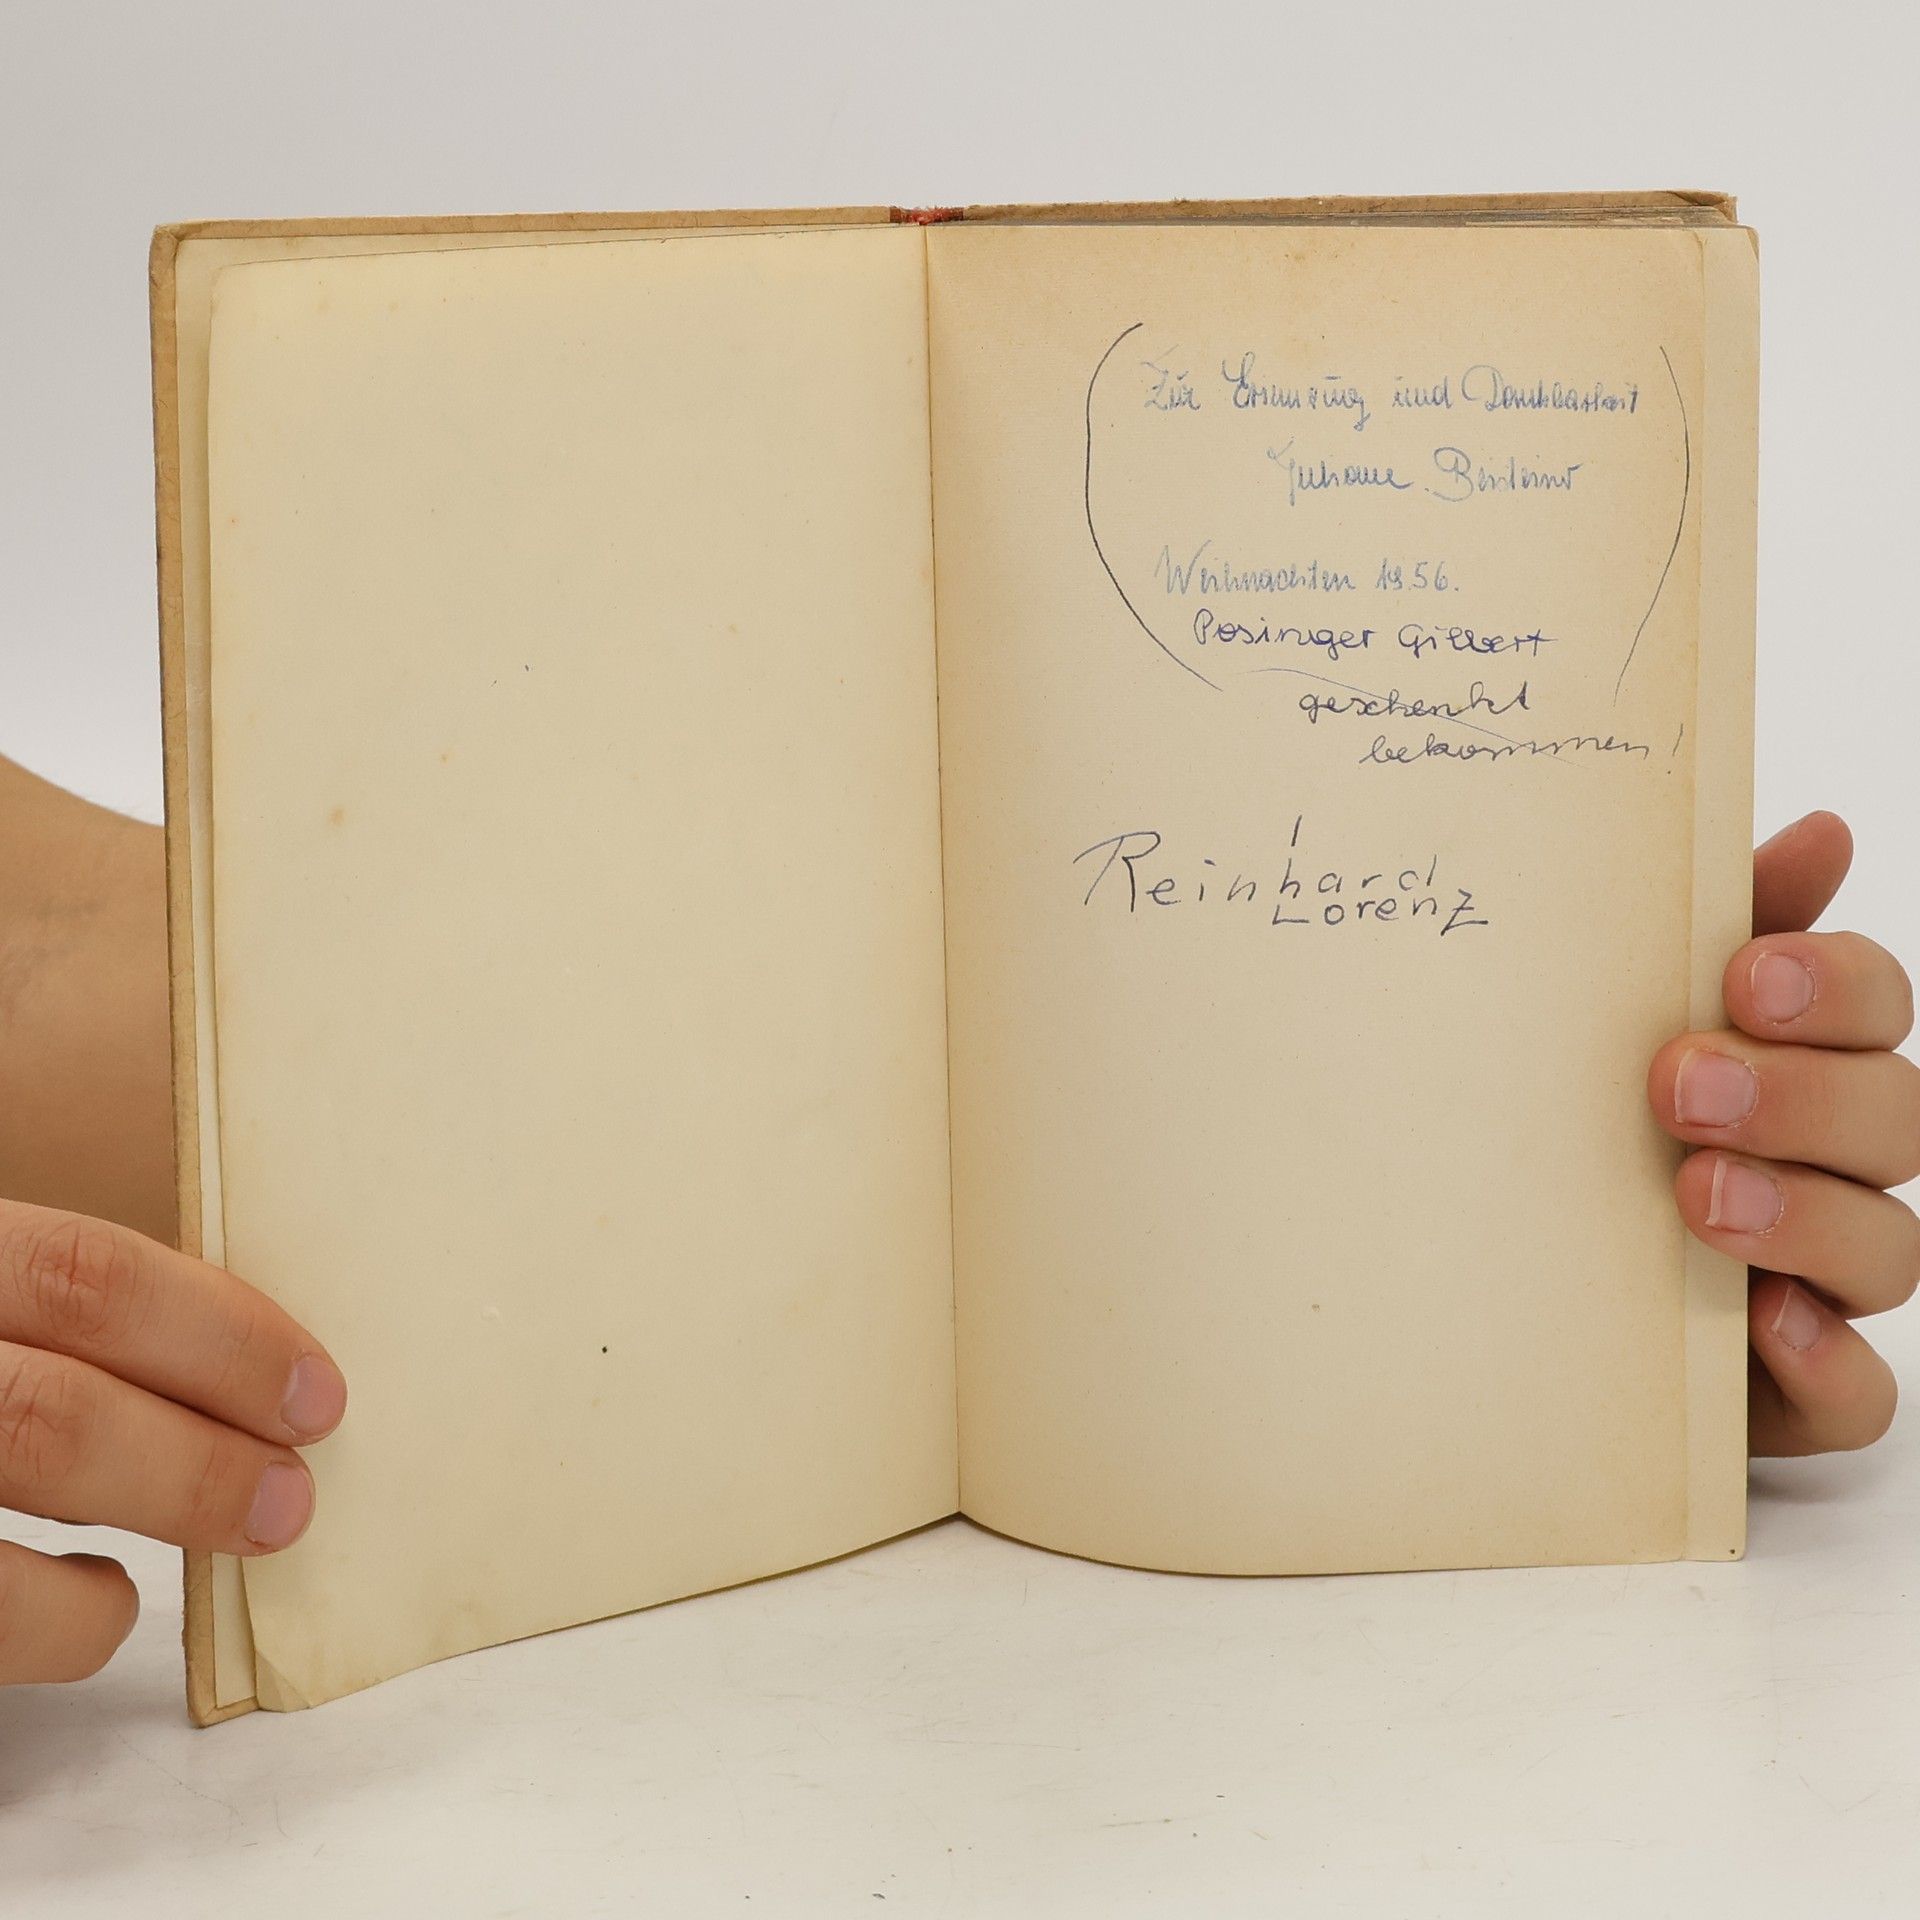 (Zur Erinnerung und Dankbarkeit
Juliane
Weihnachten 1956.
Posinger Gilbert)
geschenkt
bekommen!
Reinhard
Lorenz